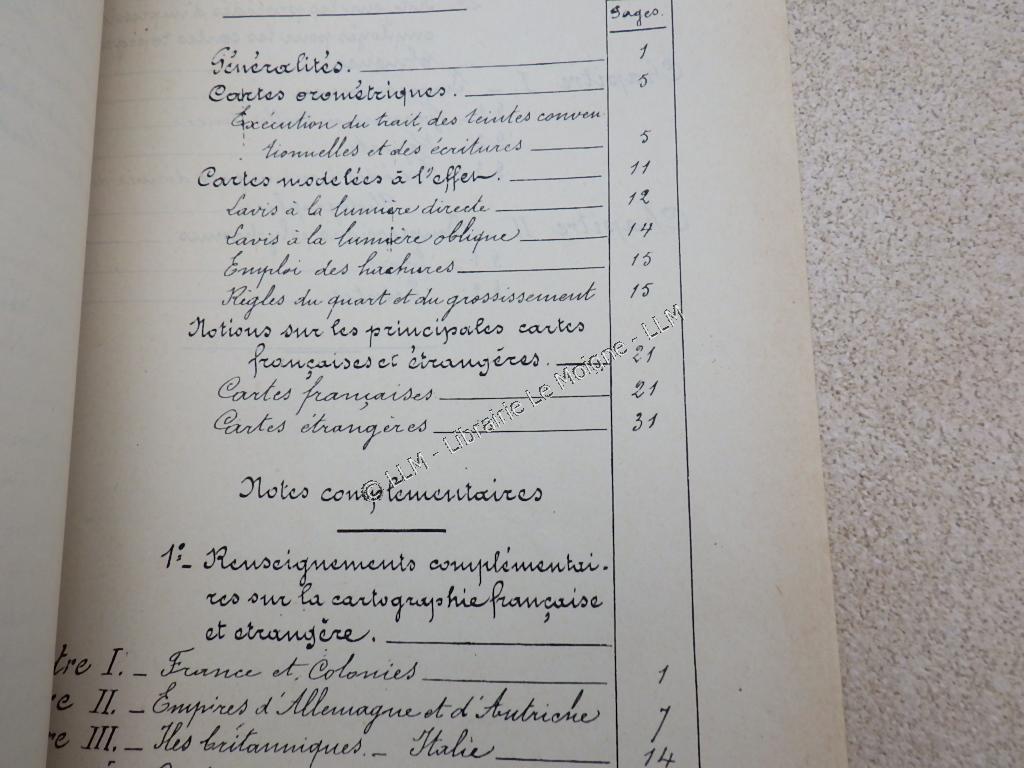 Pages.
Généralités. 1
Cartes orométriques. 5
Exécution du trait, des teintes conven
tionnelles et des écritures 5
Cartes modelées à l'effet. 11
Lavis à la lumière directe 12
Lavis à la lumière oblique 14
Emploi des hachures 15
Règles du quart et du grossissement 15
Notions sur les principales cartes
françaises et étrangères. 21
Cartes françaises 21
Cartes étrangères 31
© LLM - Librairie Le Moigne - LLM
Notes complémentaires
1º- Renseignements complémentai-
res sur la cartographie française
et etrangère.
tre I. - France et Colonies 1
re II. - Empires d'Allemagne et d'Autriche 7
re III. - Iles britanniques. - Italie 14